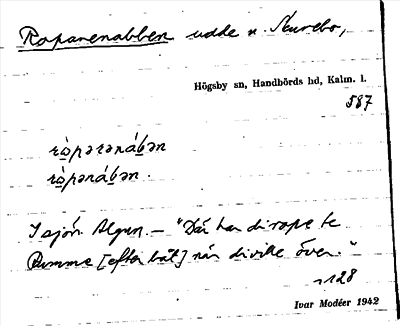 Roparenabben udde n. Sturebo,
Högsby sn, Handbörds hd, Kalm. l.
587
rὼpərənábən
rὼpənábən.
I sjön Algun. – "Där ha di ropt te
Rumme [efter båt] när di ville över."
128
Ivar Modéer 1942